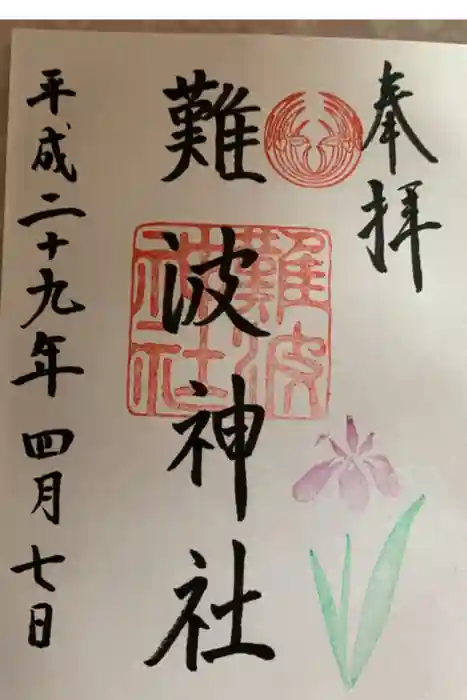 奉拝
難波神社
難波神社
平成二十九年四月七日